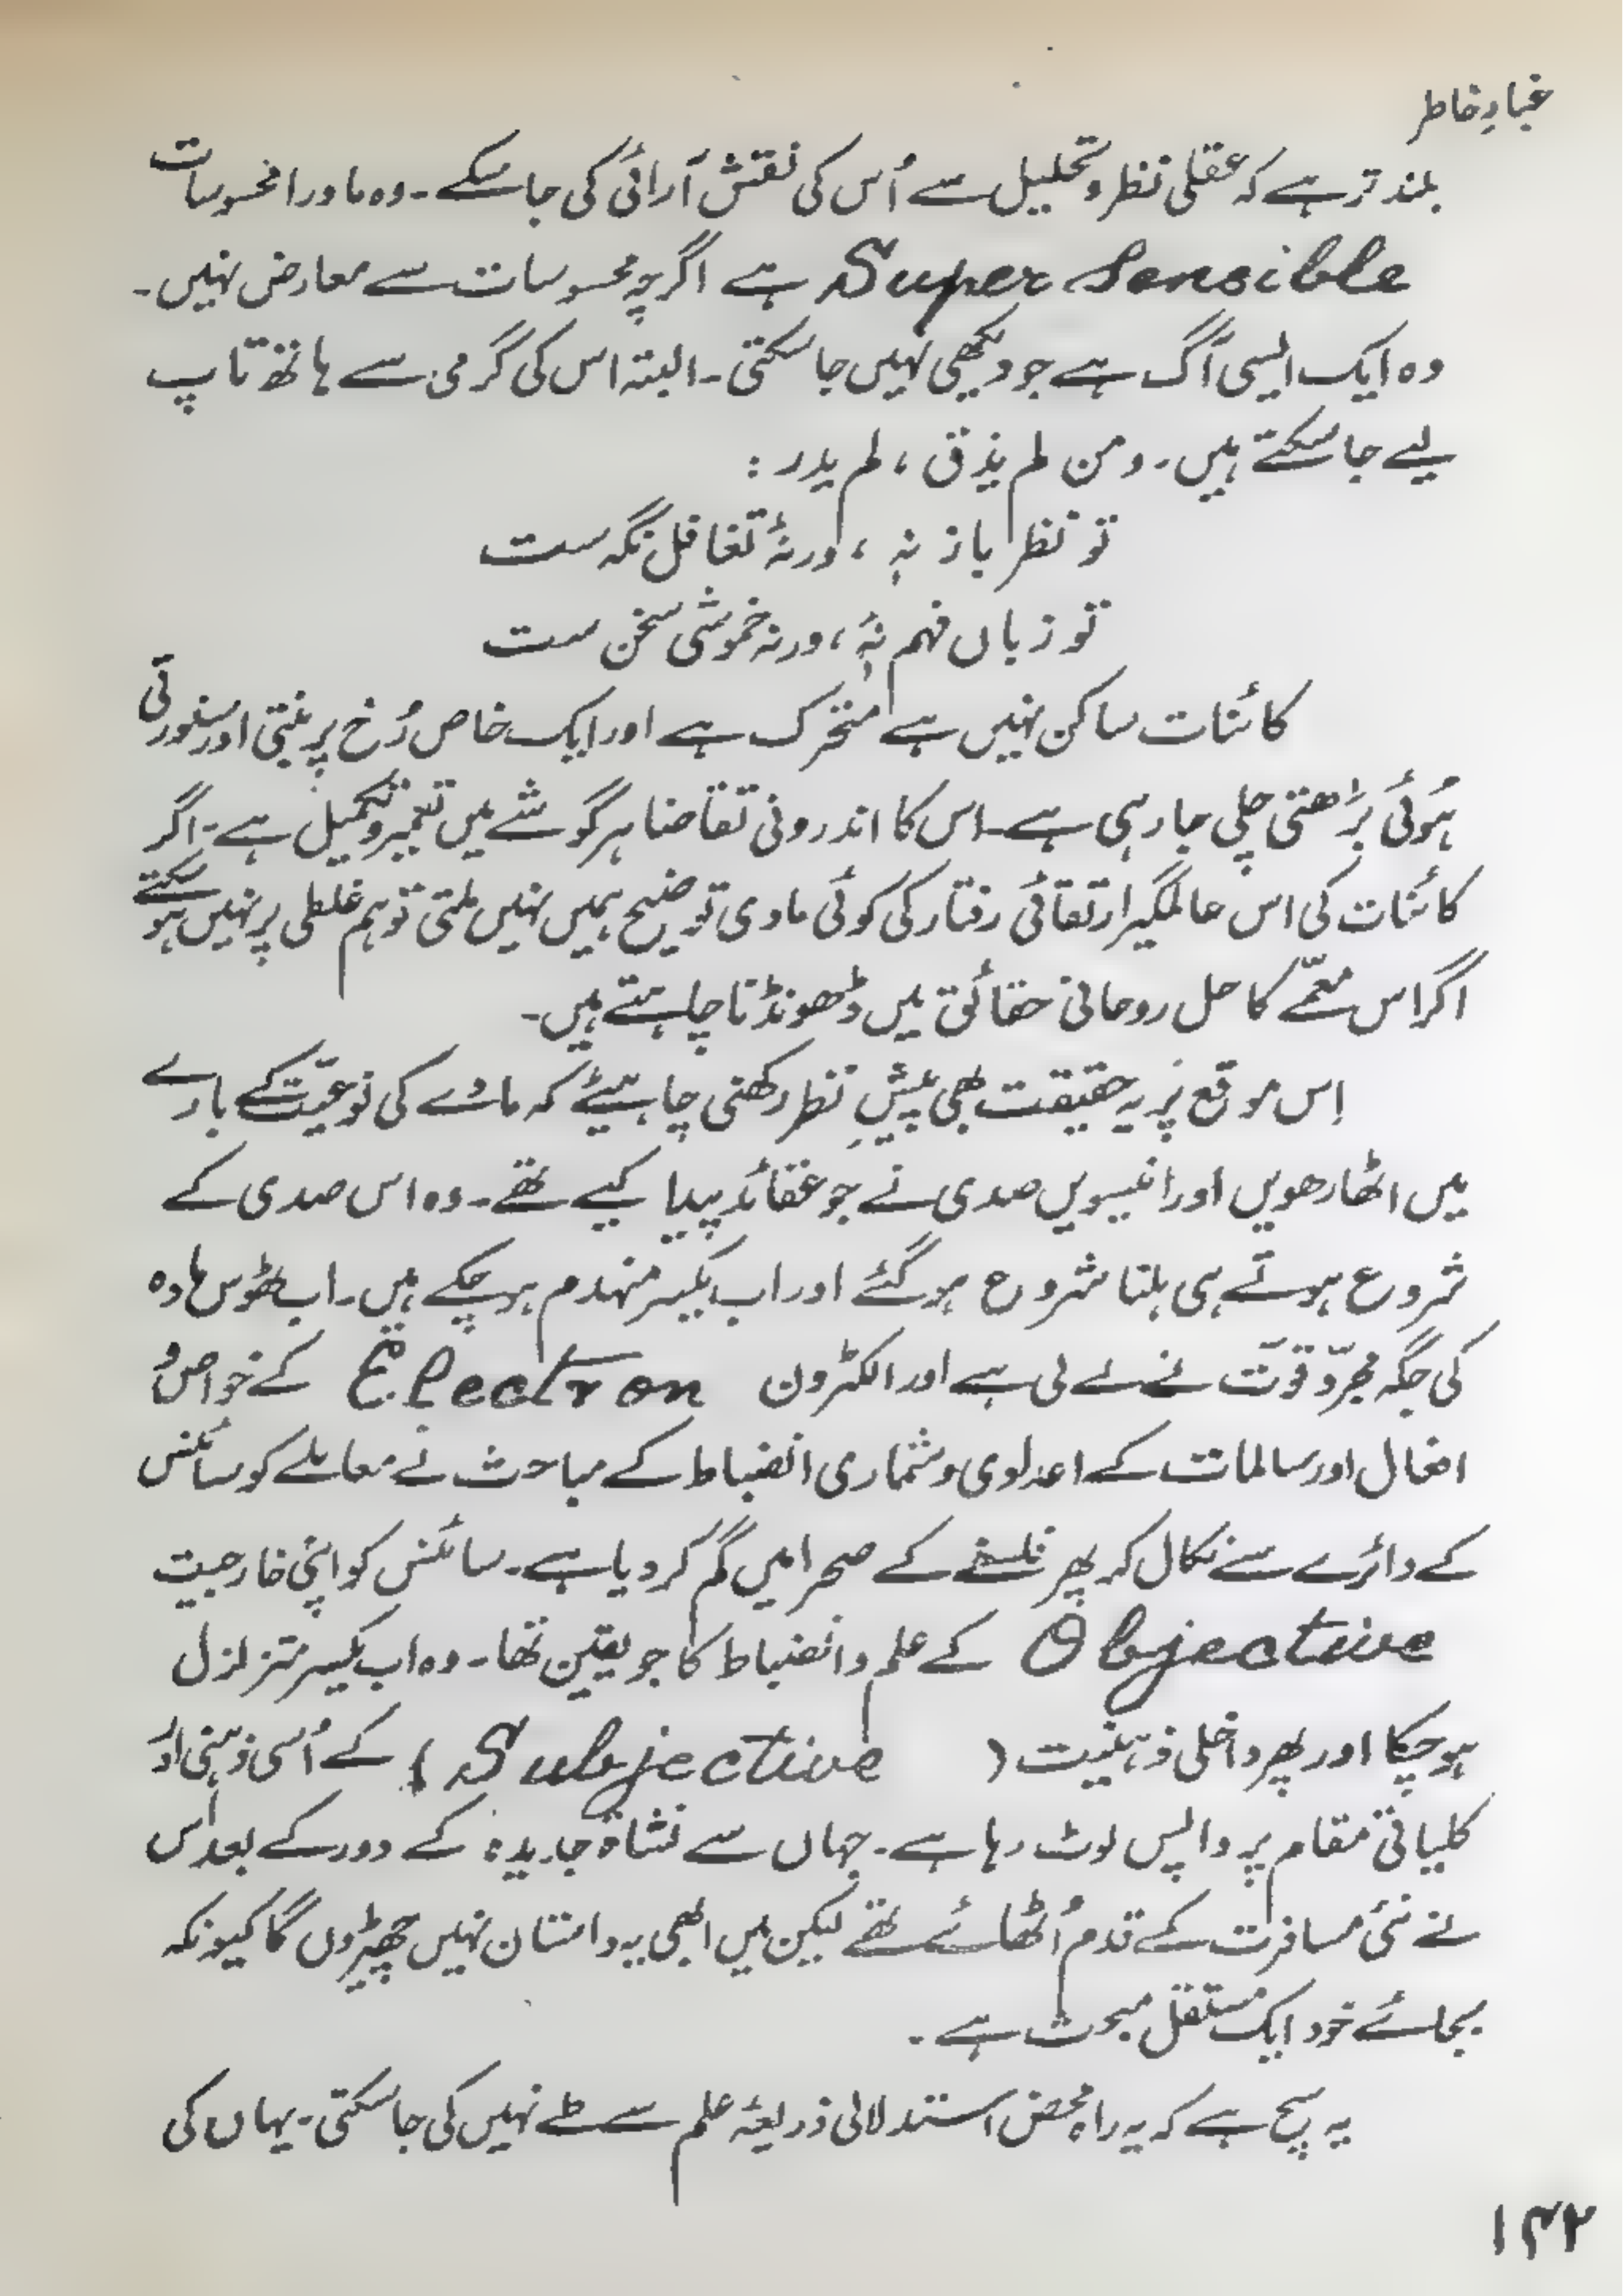 غبارِ خاطر
بلند تر ہے کہ عقلی نظر و تحلیل سے اُس کی نقش آرائی کی جا سکے۔ وہ ماورا محسوسات
Super Sensible ہے اگرچہ محسوسات سے معارض نہیں۔
وہ ایک ایسی آگ ہے جو دیکھی نہیں جا سکتی۔ البتہ اس کی گرمی سے ہاتھ تاپ
لیے جا سکتے ہیں۔ ومن لم یذق، لم یدر:
تو نظر باز نۂ، ورنہ تغافل نگہ ست
تو زباں فہم نۂ، ورنہ خموشی سخن ست
کائنات ساکن نہیں ہے متحرک ہے اور ایک خاص رُخ پر بنتی اور سنورتی
ہُوئی بڑھتی چلی جا رہی ہے۔ اس کا اندرونی تقاضا ہر گوشے میں تعمیر و تکمیل ہے۔ اگر
کائنات کی اس عالمگیر ارتقائی رفتار کی کوئی مادی توضیح ہمیں نہیں ملتی تو ہم غلطی پر نہیں ہو سکتے
اگر اس معمّے کا حل روحانی حقائق میں ڈھونڈنا چاہتے ہیں۔
اِس موقع پر یہ حقیقت بھی پیشِ نظر رکھنی چاہیئے کہ مادّے کی نوعیّت کے بارے
میں اٹھارھویں اور انیسویں صدی نے جو عقائد پیدا کیے تھے۔ وہ اس صدی کے
شروع ہوتے ہی ہلنا شروع ہو گئے اور اب یکسر منہدم ہو چکے ہیں۔ اب ٹھوس مادہ
کی جگہ مجرّد قوّت نے لے لی ہے اور الکٹرون Electron کے خواص و
افعال اور سالمات کے اعدادی و شماری انضباط کے مباحث نے معاملے کو سائنس
کے دائرے سے نکال کر پھر فلسفے کے صحرا میں گم کر دیا ہے۔ سائنس کو اپنی خارجیت
Objective کے علم و انضباط کا جو یقین تھا۔ وہ اب یکسر متزلزل
ہو چکا اور پھر داخلی ذہنیت (Subjective) کے اُسی ذہنی اور
کلیاتی مقام پر واپس لوٹ رہا ہے۔ جہاں سے نشاۃ جدیدہ کے دور کے بعد اُس
نے نئی مسافرت کے قدم اُٹھائے تھے لیکن میں ابھی یہ داستان نہیں چھیڑوں گا کیونکہ
بجائے خود ایک مستقل مبحث ہے۔
یہ سچ ہے کہ یہ راہ محض استدلالی ذریعۂ علم سے طے نہیں کی جا سکتی۔ یہاں کی
۱۴۲